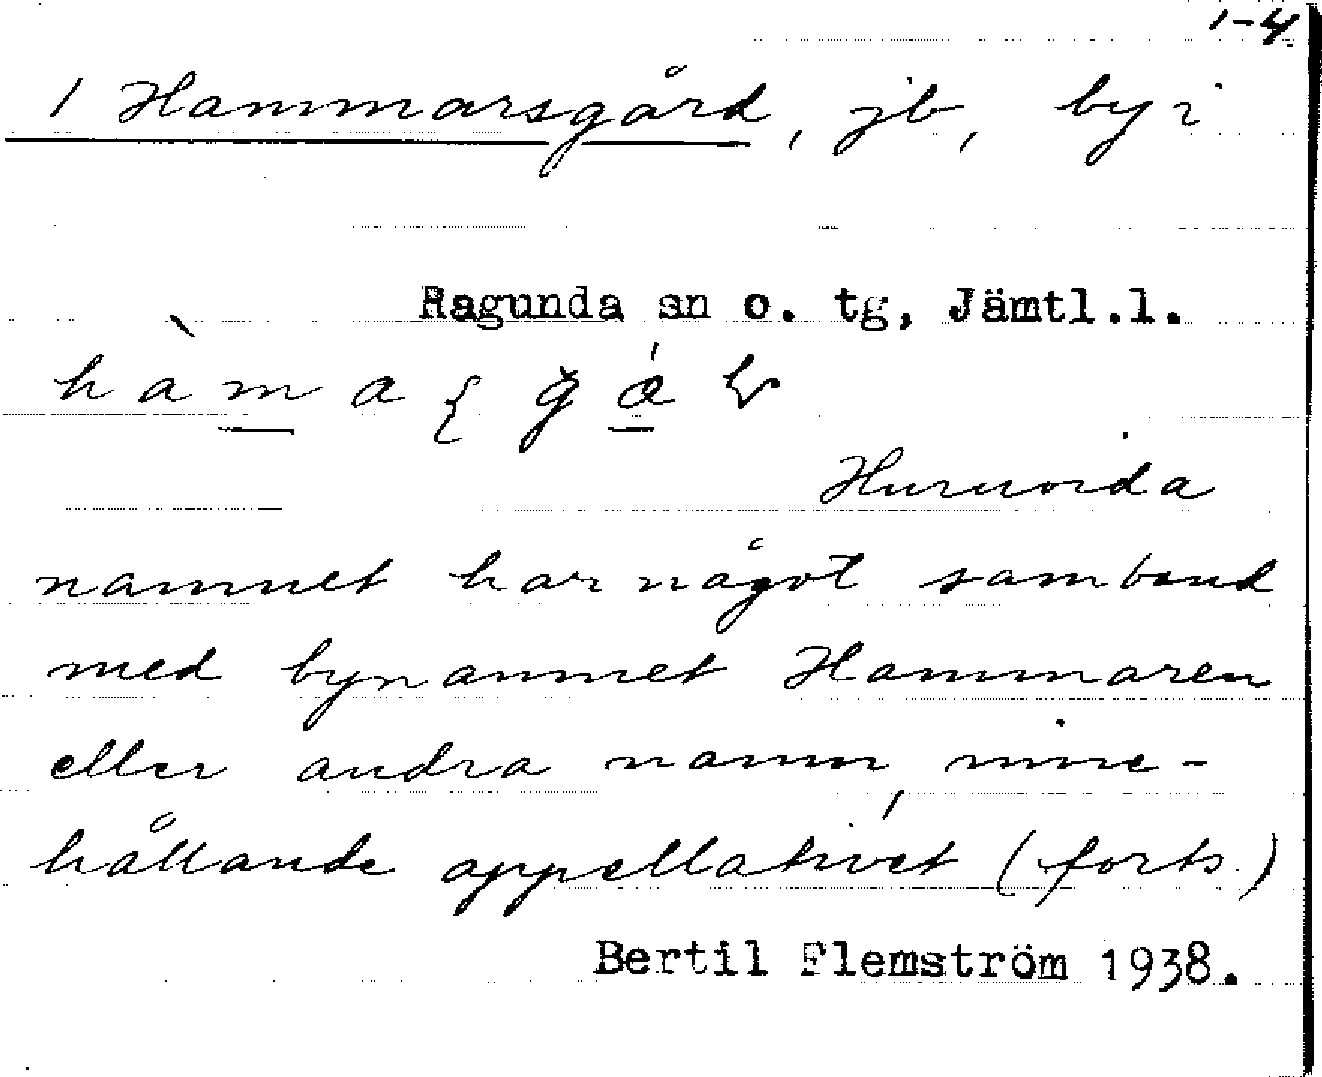 1-4
1 Hammarsgård, jb, by i
Ragunda sn o. tg, Jämtl.l.
Huruvida
namnet har något samband
med bynamnet Hammaren
eller andra namn, inne-
hållande appellativet (forts.)
Bertil Flemström 1938.